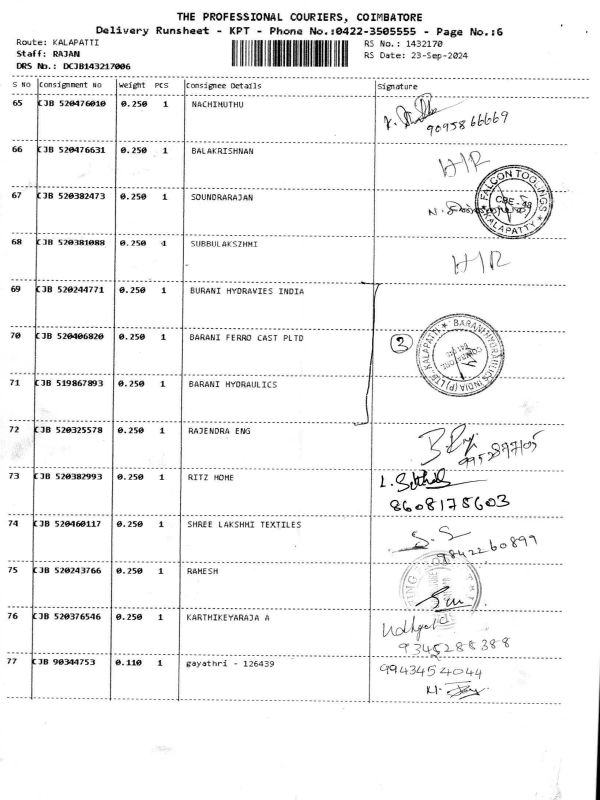 THE PROFESSIONAL COURIERS, COIMBATORE
Delivery Runsheet - KPT - Phone No.:0422-3505555 - Page No.:6
Route: KALAPATTI RS No.: 1432170
Staff: RAJAN RS Date: 23-Sep-2024
DRS No.: DCJB143217006
S No Consignment No Weight PCS Consignee Details Signature
65 CJB 520476010 0.250 1 NACHIMUTHU
9095866669
66 CJB 520476631 0.250 1 BALAKRISHNAN H/R
67 CJB 520382473 0.250 1 SOUNDRARAJAN
FALCON TOOLINGS
CBE - 48
KALAPATTY
68 CJB 520381088 0.250 1 SUBBULAKSZHMI H/R
69 CJB 520244771 0.250 1 BURANI HYDRAVIES INDIA
70 CJB 520406820 0.250 1 BARANI FERRO CAST PLTD 3
BARANI HYDRAULICS INDIA (P) LTD. KALAPATTI
71 CJB 519867893 0.250 1 BARANI HYDRAULICS
72 CJB 520325578 0.250 1 RAJENDRA ENG
73 CJB 520382993 0.250 1 RITZ HOME
8608175603
74 CJB 520460117 0.250 1 SHREE LAKSHMI TEXTILES
9842260899
75 CJB 520243766 0.250 1 RAMESH
76 CJB 520376546 0.250 1 KARTHIKEYARAJA A
9345288388
77 CJB 90344753 0.110 1 gayathri - 126439 9943454044